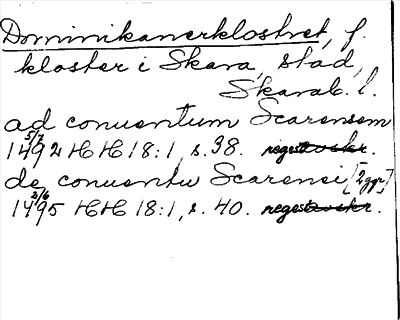 Dominikanerklostret, f.
kloster i Skara, stad,
Skarab. l.
ad conuentum Scarensem
5/2
1492 HH 18:1, s. 38. regest avskr.
de conuentu Scarensi [2 ggr]
2/6
1495 HH 18:1, s. 40. regest avskr.